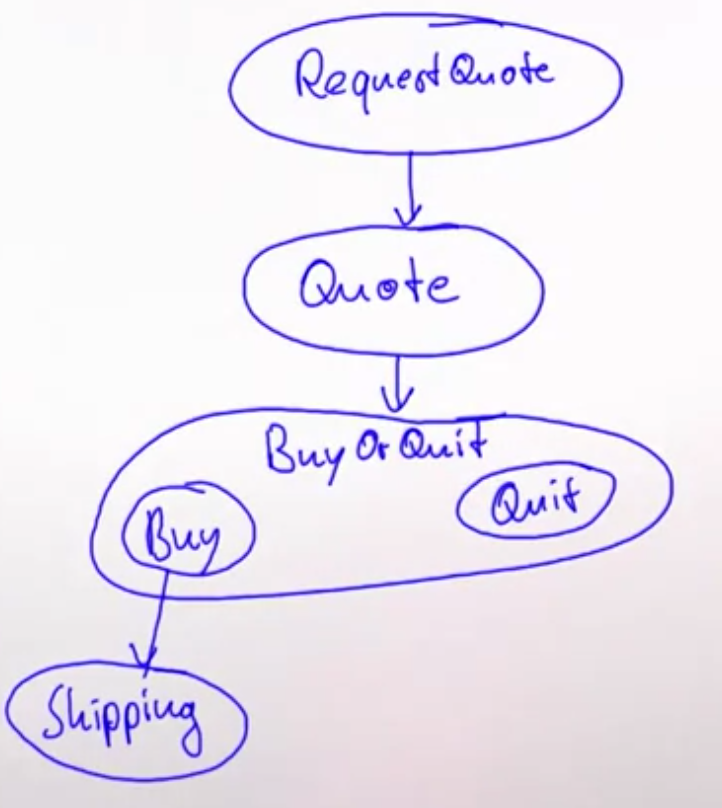 RequestQuote
Quote
BuyOrQuit
Buy
Quit
Shipping